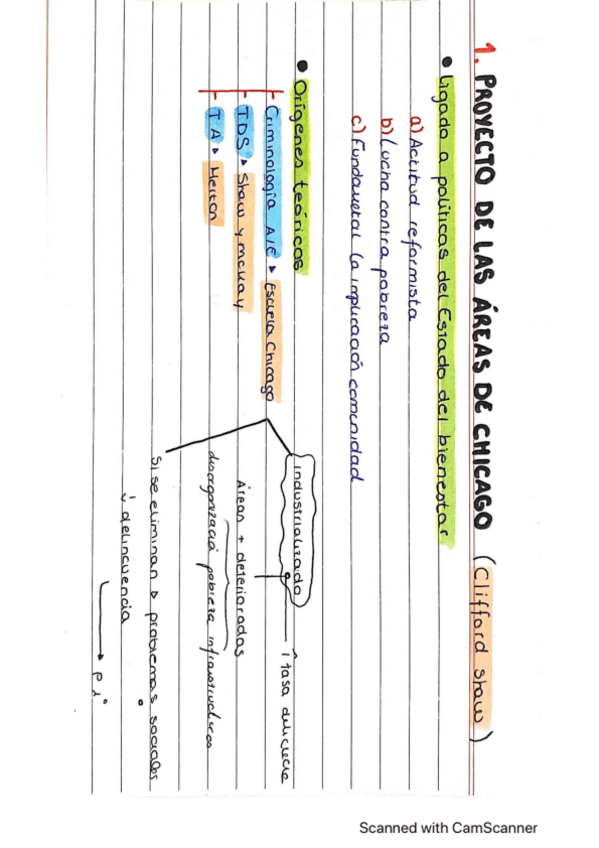 1. PROYECTO DE LAS ÁREAS DE CHICAGO (Clifford Shaw)
• Ligado a políticas del Estado del bienestar
a) Actitud reformista
b) Lucha contra pobreza
c) Fundamental la implicación comunidad
• Orígenes teóricos
Criminología A/E ▸ Escuela Chicago
TDS ▸ Shaw y Mckay
TA ▸ Merton
industrializada
↑ tasa delicucia
Áreas + deterioradas
desorganizació pobreza infraestructuras
Si se eliminan ▸ problemas sociales
↓ delincuencia
P 1º
Scanned with CamScanner